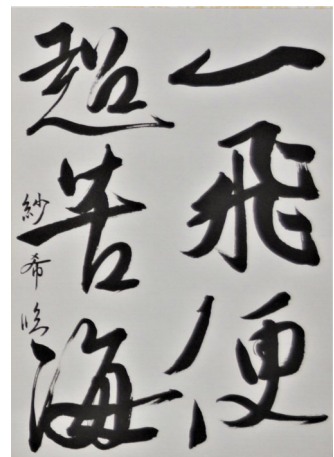 一飛便
超苦海
紗希臨